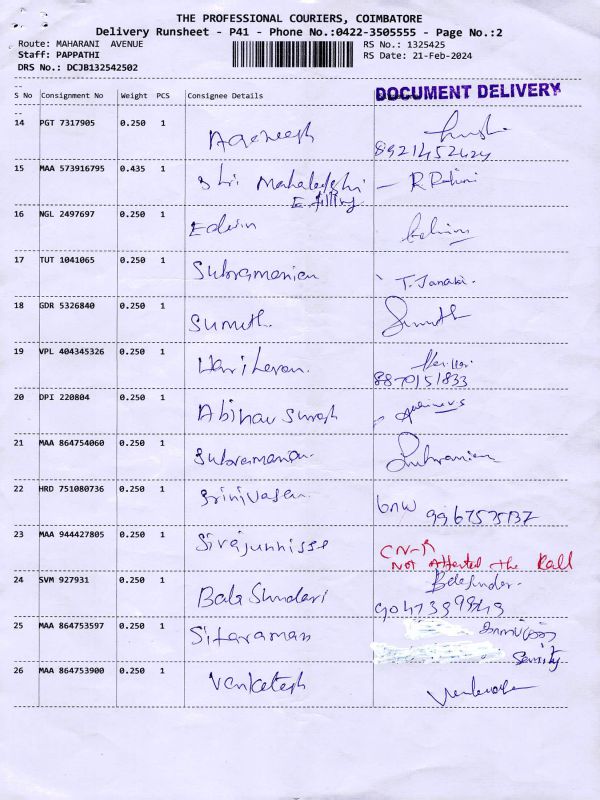 THE PROFESSIONAL COURIERS, COIMBATORE
Delivery Runsheet - P41 - Phone No.:0422-3505555 - Page No.:2
Route: MAHARANI AVENUE
RS No.: 1325425
Staff: PAPPATHI
RS Date: 21-Feb-2024
DRS No.: DCJB132542502
S No Consignment No Weight PCS Consignee Details
DOCUMENT DELIVERY
14 PGT 7317905 0.250 1
8921452424
15 MAA 573916795 0.435 1 Sri Mahalakshmi
E. filling
16 NGL 2497697 0.250 1 Edwin
17 TUT 1041065 0.250 1 Subramanian T. Janaki.
18 GDR 5326840 0.250 1 Sumith. Sumith
19 VPL 404345326 0.250 1 Hariharan.
8870151833
20 DPI 220804 0.250 1 Abinav Suresh
21 MAA 864754060 0.250 1 Subramanian.
22 HRD 751080736 0.250 1 Srinivasan.
9967575137
23 MAA 944427805 0.250 1 Sirajunnisse CN-R
Not Attented the Kall
24 SVM 927931 0.250 1 Bala Sundari
25 MAA 864753597 0.250 1 Sitaraman
26 MAA 864753900 0.250 1 Venketesh